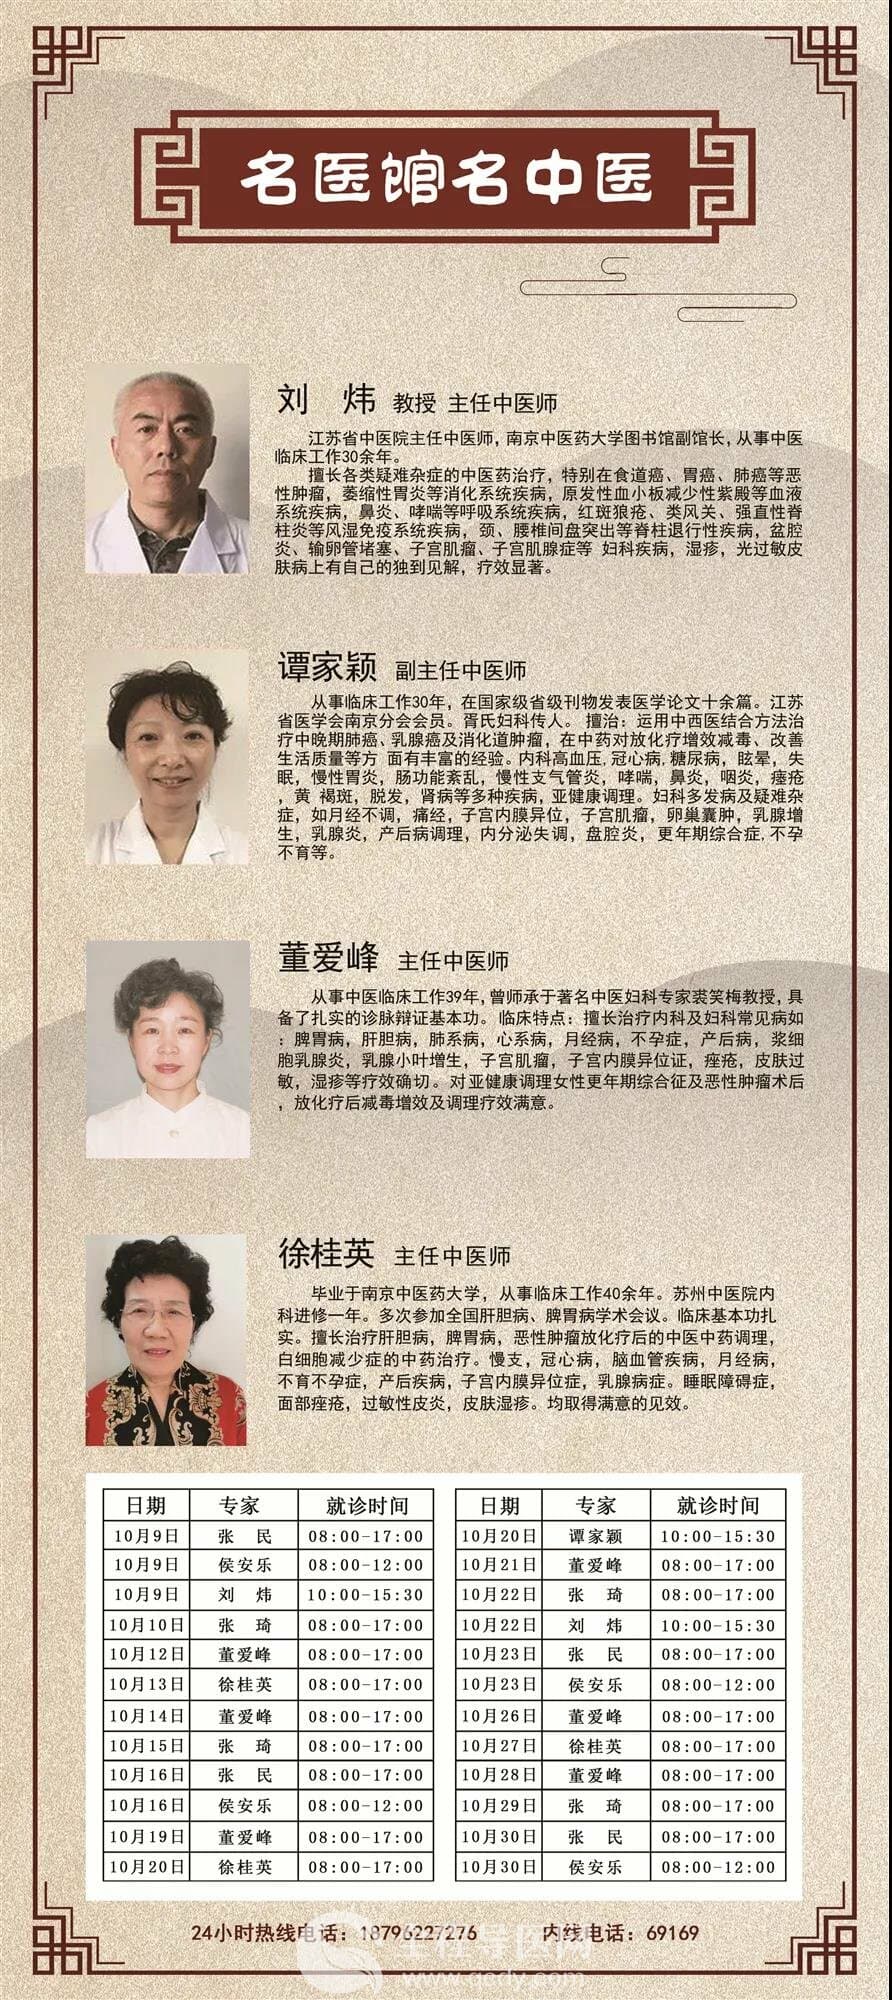 名医馆名中医
刘 炜 教授 主任中医师
江苏省中医院主任中医师，南京中医药大学图书馆副馆长，从事中医
临床工作30余年。
擅长各类疑难杂症的中医药治疗，特别在食道癌、胃癌、肺癌等恶
性肿瘤，萎缩性胃炎等消化系统疾病，原发性血小板减少性紫殿等血液
系统疾病，鼻炎、哮喘等呼吸系统疾病，红斑狼疮、类风关、强直性脊
柱炎等风湿免疫系统疾病，颈、腰椎间盘突出等脊柱退行性疾病，盆腔
炎、输卵管堵塞、子宫肌瘤、子宫肌腺症等 妇科疾病，湿疹，光过敏皮
肤病上有自己的独到见解，疗效显著。
谭家颖 副主任中医师
从事临床工作30年，在国家级省级刊物发表医学论文十余篇。江苏
省医学会南京分会会员。胥氏妇科传人。 擅治：运用中西医结合方法治
疗中晚期肺癌、乳腺癌及消化道肿瘤，在中药对放化疗增效减毒、改善
生活质量等方 面有丰富的经验。内科高血压,冠心病,糖尿病，眩晕，失
眠，慢性胃炎，肠功能紊乱，慢性支气管炎，哮喘，鼻炎，咽炎，痤疮
，黄 褐斑，脱发，肾病等多种疾病，亚健康调理。妇科多发病及疑难杂
症，如月经不调，痛经，子宫内膜异位，子宫肌瘤，卵巢囊肿，乳腺增
生，乳腺炎，产后病调理，内分泌失调，盘腔炎，更年期综合症,不孕
不育等。
董爱峰 主任中医师
从事中医临床工作39年，曾师承于著名中医妇科专家裘笑梅教授，具
备了扎实的诊脉辩证基本功。临床特点：擅长治疗内科及妇科常见病如
：脾胃病，肝胆病，肺系病，心系病，月经病，不孕症，产后病，浆细
胞乳腺炎，乳腺小叶增生，子宫肌瘤，子宫内膜异位证，痤疮，皮肤过
敏，湿疹等疗效确切。对亚健康调理女性更年期综合征及恶性肿瘤术后
，放化疗后减毒增效及调理疗效满意。
徐桂英 主任中医师
毕业于南京中医药大学，从事临床工作40余年。苏州中医院内
科进修一年。多次参加全国肝胆病、脾胃病学术会议。临床基本功扎
实。擅长治疗肝胆病，脾胃病，恶性肿瘤放化疗后的中医中药调理，
白细胞减少症的中药治疗。慢支，冠心病，脑血管疾病，月经病，
不育不孕症，产后疾病，子宫内膜异位症，乳腺病症。睡眠障碍症，
面部痤疮，过敏性皮炎，皮肤湿疹。均取得满意的见效。
日期 专家 就诊时间
10月9日 张 民 08:00-17:00
10月9日 侯安乐 08:00-12:00
10月9日 刘 炜 10:00-15:30
10月10日 张 琦 08:00-17:00
10月12日 董爱峰 08:00-17:00
10月13日 徐桂英 08:00-17:00
10月14日 董爱峰 08:00-17:00
10月15日 张 琦 08:00-17:00
10月16日 张 民 08:00-17:00
10月16日 侯安乐 08:00-12:00
10月19日 董爱峰 08:00-17:00
10月20日 徐桂英 08:00-17:00
日期 专家 就诊时间
10月20日 谭家颖 10:00-15:30
10月21日 董爱峰 08:00-17:00
10月22日 张 琦 08:00-17:00
10月22日 刘 炜 10:00-15:30
10月23日 张 民 08:00-17:00
10月23日 侯安乐 08:00-12:00
10月26日 董爱峰 08:00-17:00
10月27日 徐桂英 08:00-17:00
10月28日 董爱峰 08:00-17:00
10月29日 张 琦 08:00-17:00
10月30日 张 民 08:00-17:00
10月30日 侯安乐 08:00-12:00
24小时热线电话：18796227276 内线电话：69169